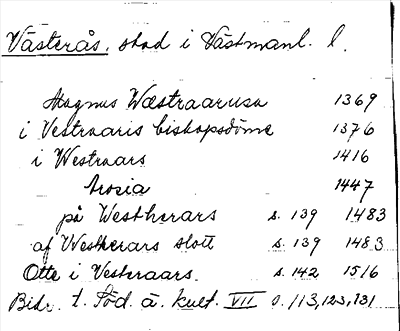 Västerås, stad i Västmanl. l.
Magnus Wæstraarusa 1369
i Vestraaris biskopsdöme 1376
i Westraars 1416
Arosia 1447
på Westherars s. 139 1483
af Westherars slott s. 139 1483
Otte i Vesteraars. s. 142 1516
Bidr. t. Söd. ä. kult. VII s. 113, 123, 131